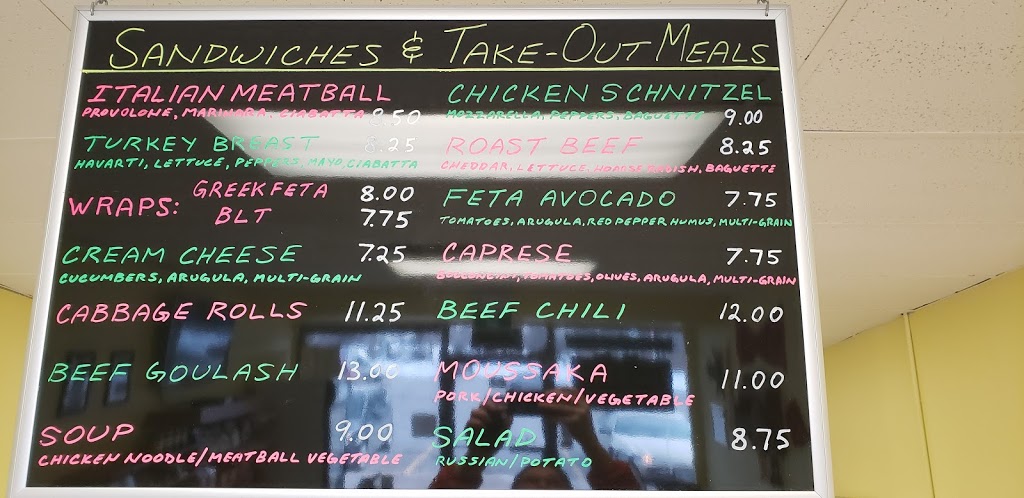 SANDWICHES & TAKE-OUT MEALS
ITALIAN MEATBALL
PROVOLONE, MARINARA, CIABATTA 9.50
TURKEY BREAST 8.25
HAVARTI, LETTUCE, PEPPERS, MAYO, CIABATTA
WRAPS: GREEK FETA 8.00
BLT 7.75
CREAM CHEESE 7.25
CUCUMBERS, ARUGULA, MULTI-GRAIN
CABBAGE ROLLS 11.25
BEEF GOULASH 13.00
SOUP 9.00
CHICKEN NOODLE/MEATBALL VEGETABLE
CHICKEN SCHNITZEL
MOZZARELLA, PEPPERS, BAGUETTE 9.00
ROAST BEEF 8.25
CHEDDAR, LETTUCE, HORSERADISH, BAGUETTE
FETA AVOCADO 7.75
TOMATOES, ARUGULA, RED PEPPER HUMUS, MULTI-GRAIN
CAPRESE 7.75
BOCCONCINI, TOMATOES, OLIVES, ARUGULA, MULTI-GRAIN
BEEF CHILI 12.00
MOUSSAKA 11.00
PORK/CHICKEN/VEGETABLE
SALAD 8.75
RUSSIAN/POTATO